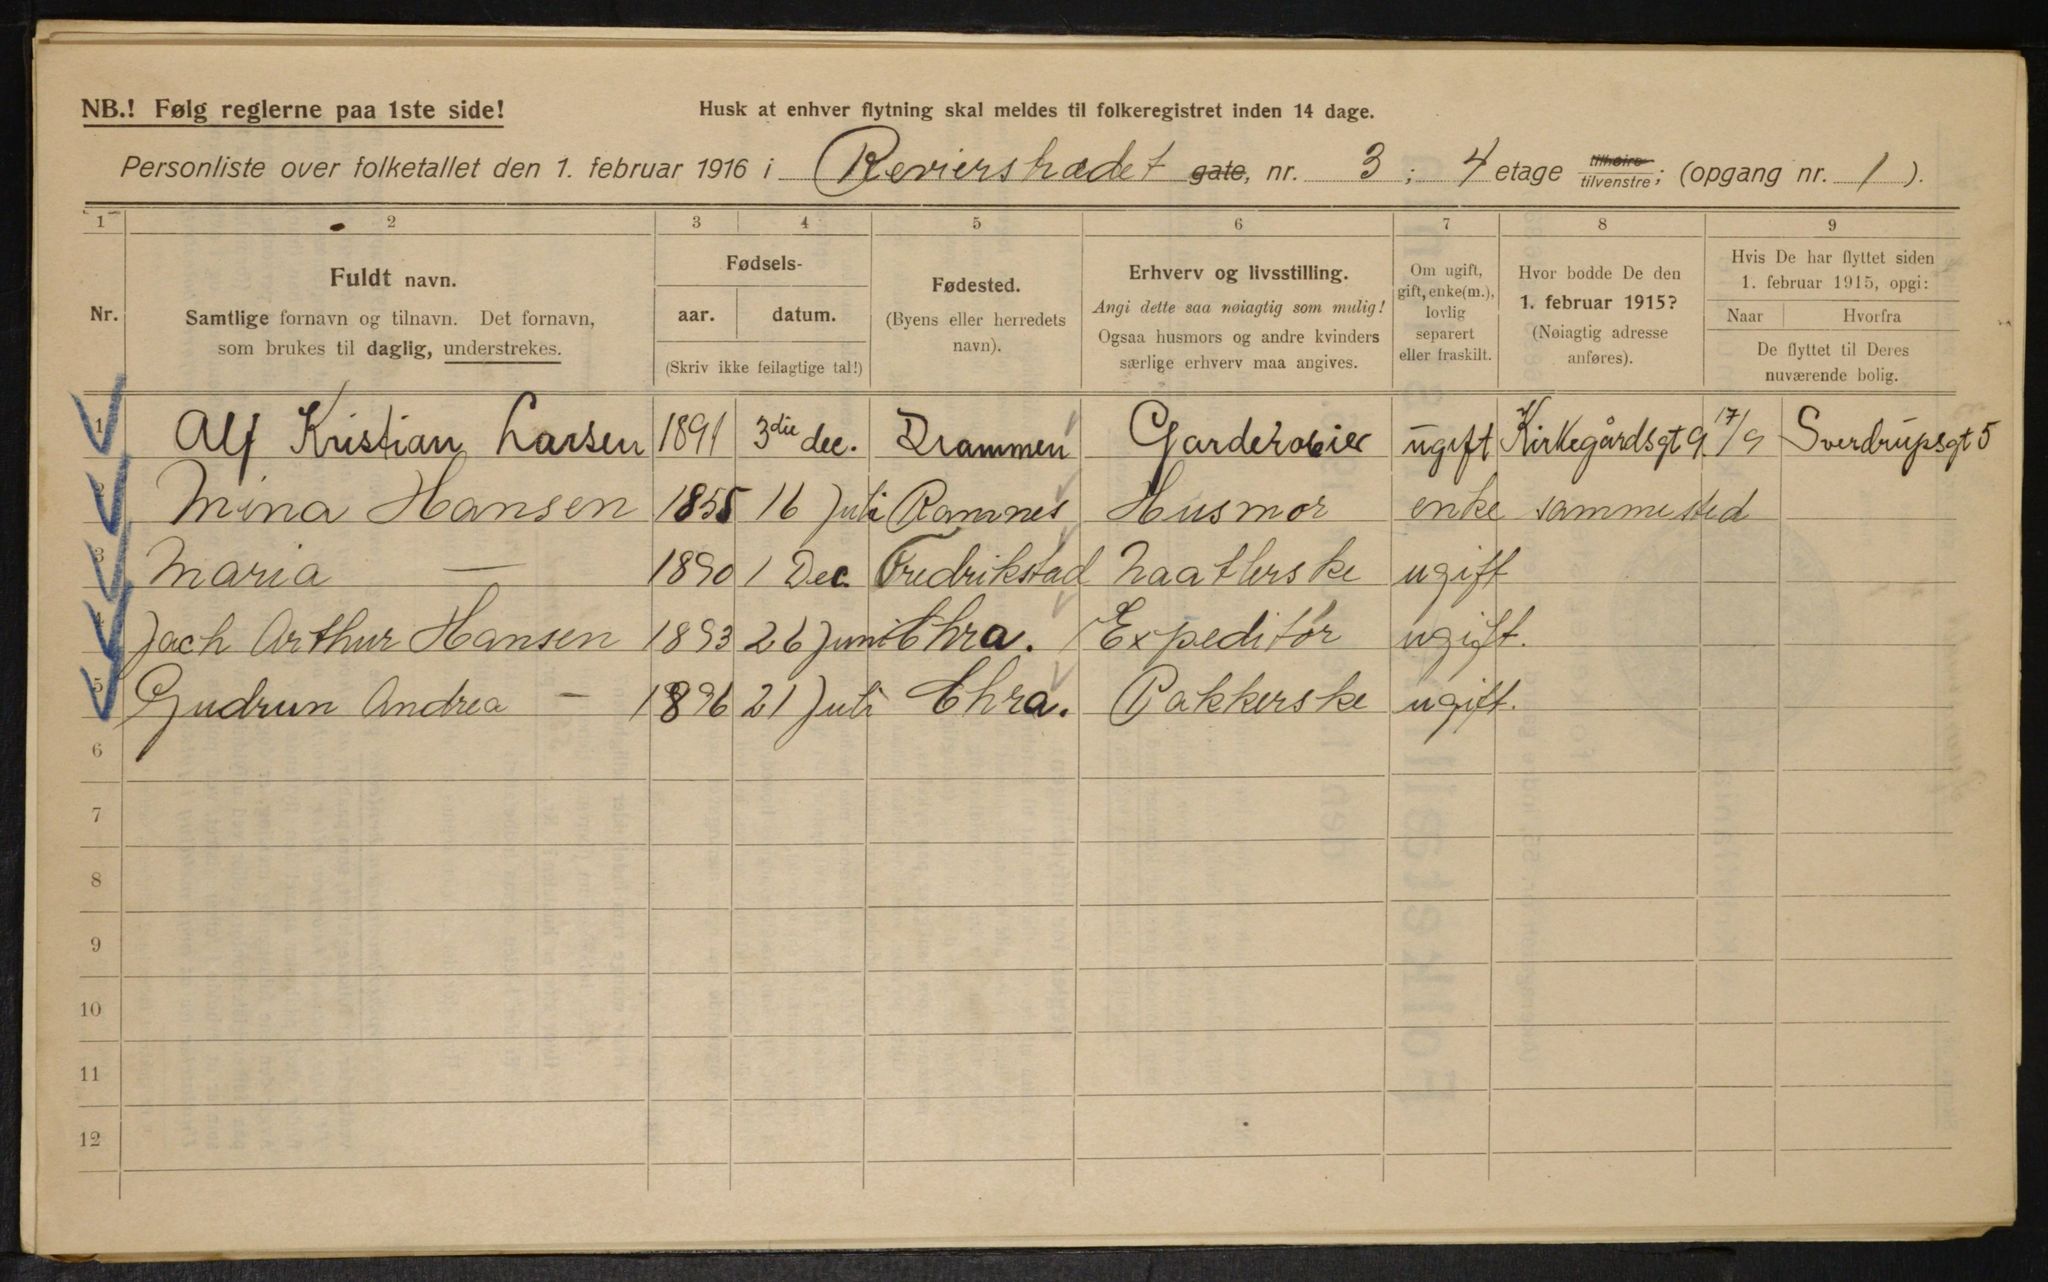 NB.! Følg reglerne paa 1ste side!
Husk at enhver flytning skal meldes til folkeregistret inden 14 dage.
Personliste over folketallet den 1. februar 1916 i Revierstrædet gate, nr. 3 ; 4 etage tilhøire tilvenstre; (opgang nr. 1 ).
1 2 3 4 5 6 7 8 9
Nr.
Fuldt navn.
Samtlige fornavn og tilnavn. Det fornavn,
som brukes til daglig, understrekes.
Fødsels-
aar. datum.
(Skriv ikke feilagtige tal!)
Fødested.
(Byens eller herredets
navn).
Erhverv og livsstilling.
Angi dette saa nøiagtig som mulig!
Ogsaa husmors og andre kvinders
særlige erhverv maa angives.
Om ugift,
gift, enke(m.),
lovlig
separert
eller fraskilt.
Hvor bodde De den
1. februar 1915?
(Nøiagtig adresse
anføres).
Hvis De har flyttet siden
1. februar 1915, opgi:
Naar Hvorfra
De flyttet til Deres
nuværende bolig.
1 Alf Kristian Larsen 1891 3die dec. Drammen Garderobier ugift Kirkegårdsgt 9 17/9 Sverdrupsgt 5
2 Mina Hansen 1855 16 Juli Ramnes Husmor enke sammested
3 Maria — 1890 1 Dec. Fredrikstad Naatlerske ugift
4 Jach Arthur Hansen 1893 26 Juni Chra. Expeditör ugift.
5 Gudrun Andrea — 1896 21 Juli Chra. Pakkerske ugift.
6
7
8
9
10
11
12